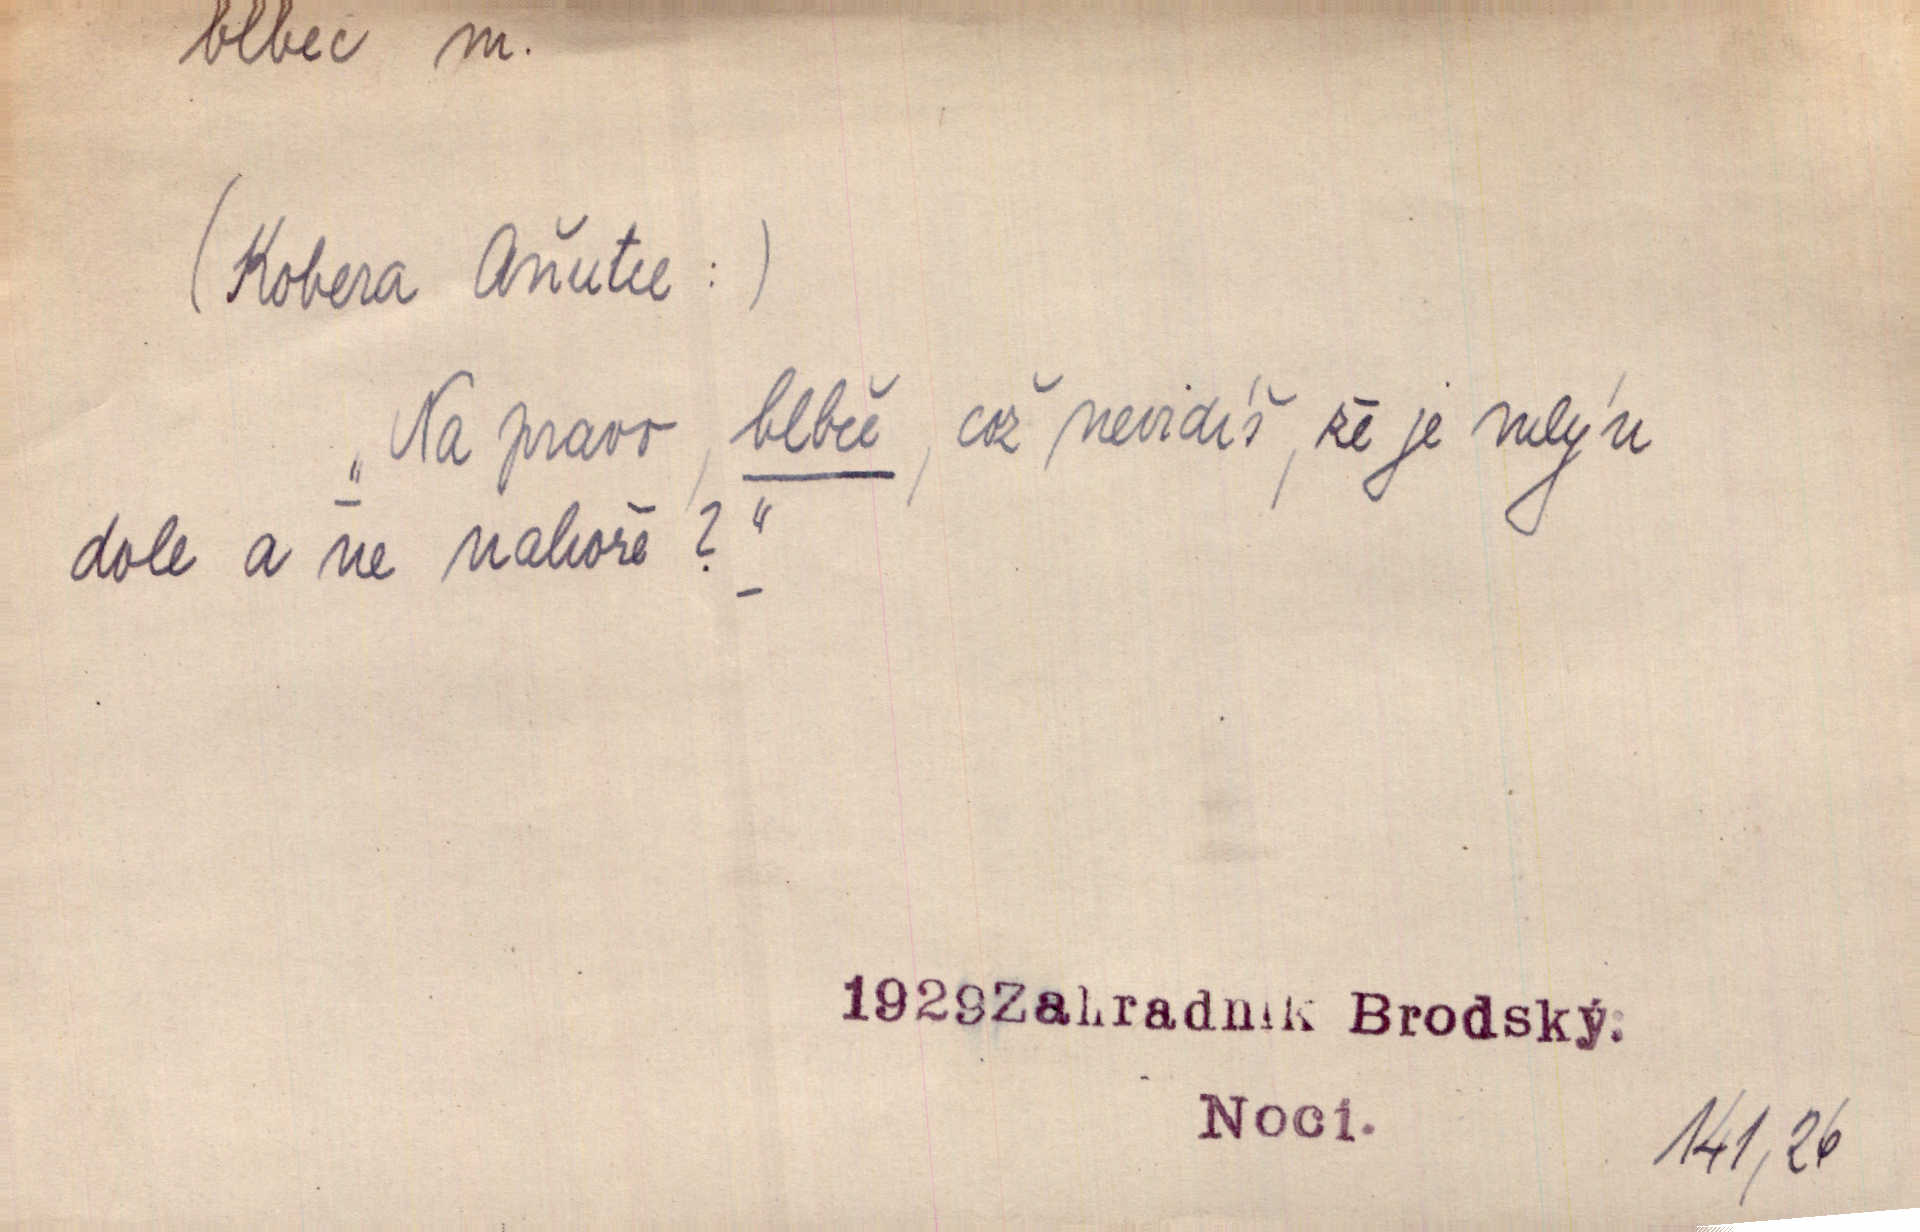 blbec m.
(Kobera Aňutce :)
„Na pravo, blbče, což nevidíš, že je mlýn
dole a ne nahoře?“
1929 Zahradník Brodský:
Noci.
141,26